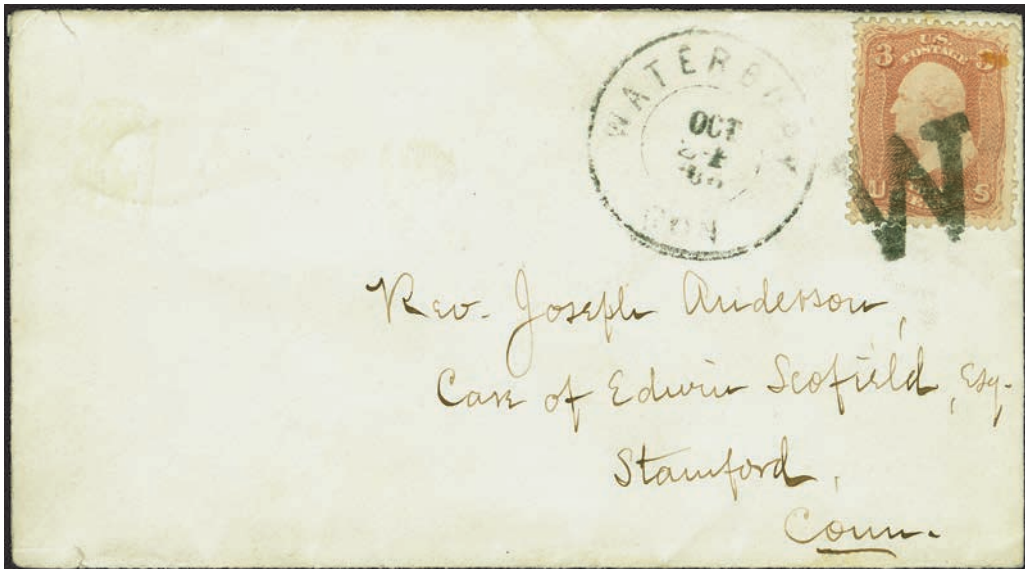 WATERBURY
OCT
CON
U.S.
POSTAGE
3 3
U S
W
Rev. Joseph Anderson,
Care of Edwin Scofield, Esq.
Stamford,
Conn.